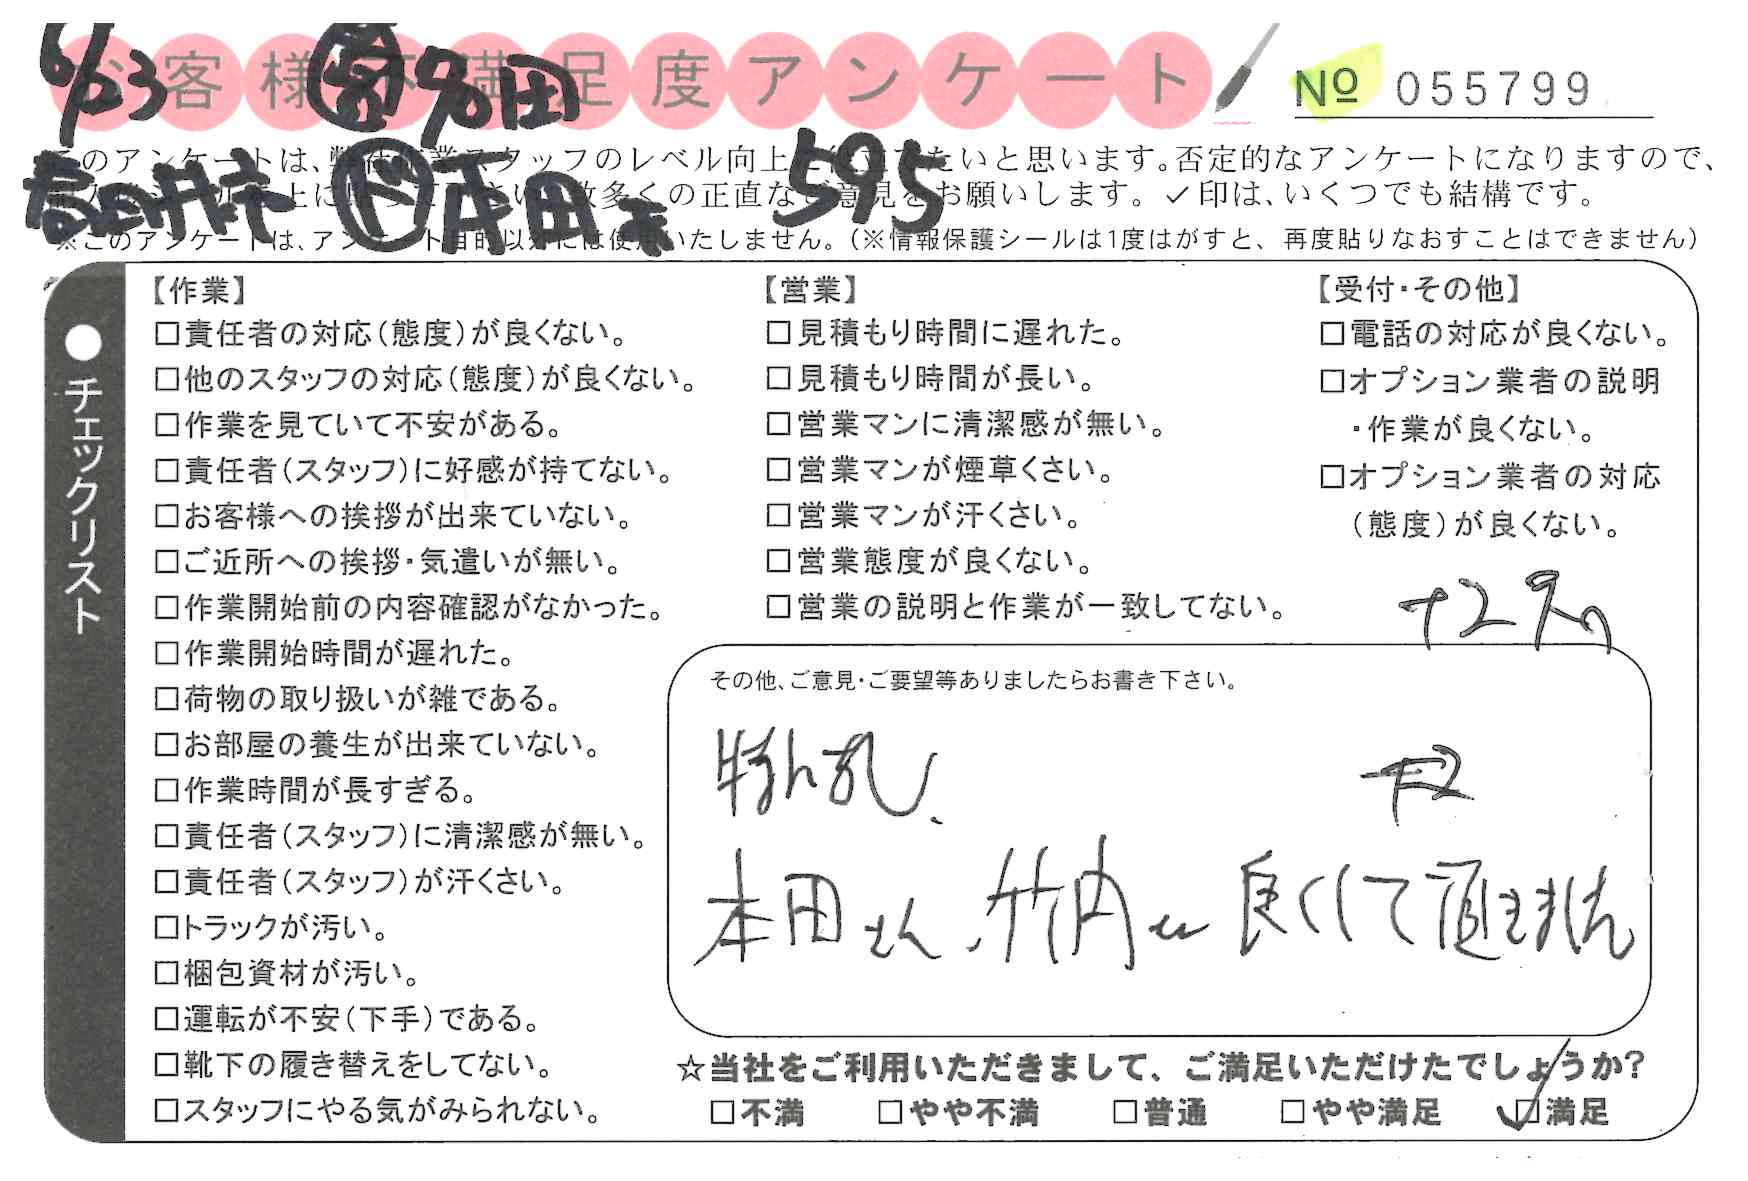 6/23
お客様不満足度アンケート
№ 055799
このアンケートは、弊社作業スタッフのレベル向上に役立てたいと思います。否定的なアンケートになりますので、
春日井市 本田 595
数多くの正直なご意見をお願いします。✓印は、いくつでも結構です。
※このアンケートは、アンケート目的以外には使用いたしません。(※情報保護シールは1度はがすと、再度貼りなおすことはできません)
●チェックリスト
【作業】
□責任者の対応(態度)が良くない。
□他のスタッフの対応(態度)が良くない。
□作業を見ていて不安がある。
□責任者(スタッフ)に好感が持てない。
□お客様への挨拶が出来ていない。
□ご近所への挨拶・気遣いが無い。
□作業開始前の内容確認がなかった。
□作業開始時間が遅れた。
□荷物の取り扱いが雑である。
□お部屋の養生が出来ていない。
□作業時間が長すぎる。
□責任者(スタッフ)に清潔感が無い。
□責任者(スタッフ)が汗くさい。
□トラックが汚い。
□梱包資材が汚い。
□運転が不安(下手)である。
□靴下の履き替えをしてない。
□スタッフにやる気がみられない。
【営業】
□見積もり時間に遅れた。
□見積もり時間が長い。
□営業マンに清潔感が無い。
□営業マンが煙草くさい。
□営業マンが汗くさい。
□営業態度が良くない。
□営業の説明と作業が一致してない。
【受付・その他】
□電話の対応が良くない。
□オプション業者の説明
・作業が良くない。
□オプション業者の対応
(態度)が良くない。
+2
その他、ご意見・ご要望等ありましたらお書き下さい。
特に無し、
本田さん、竹内さん 良くして頂きました
☆当社をご利用いただきまして、ご満足いただけたでしょうか?
□不満 □やや不満 □普通 □やや満足 ☑満足